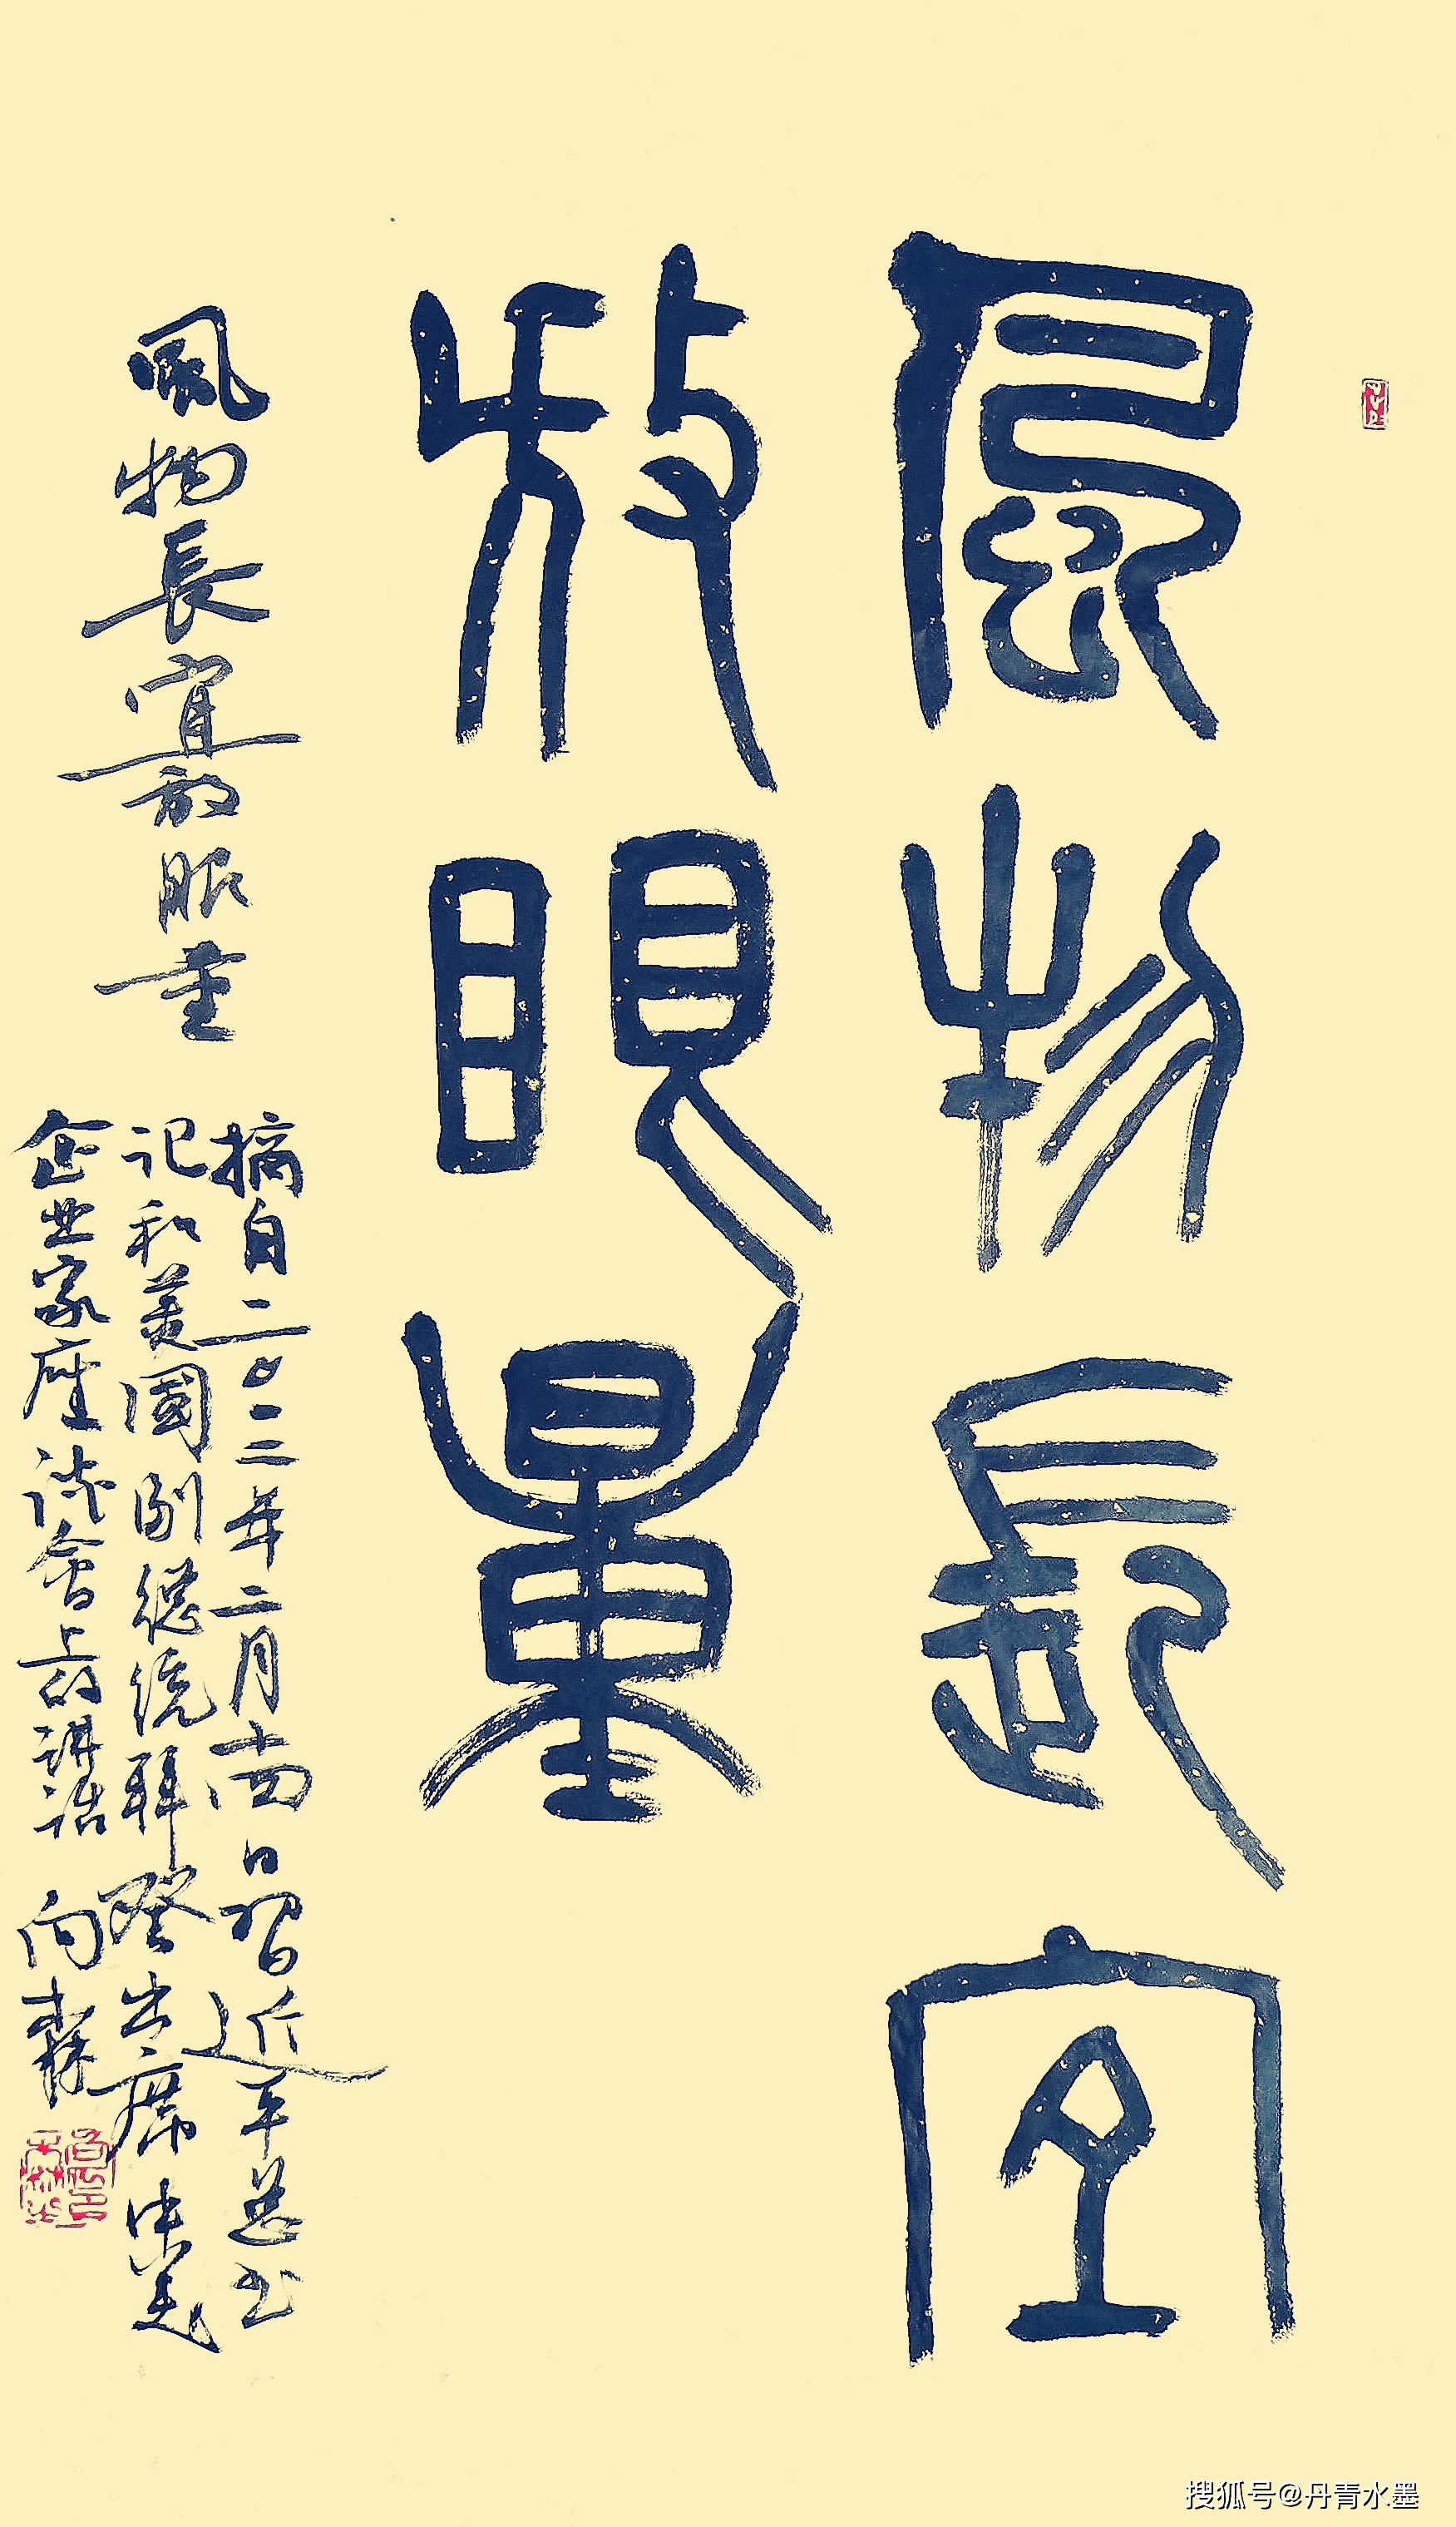 風物長宜
放眼量
風物長宜放眼量
摘自二〇一二年二月十四日習近平总书
记和美國副總統拜登出席中美
企业家座谈會上的講話 向森
搜狐号@丹青水墨